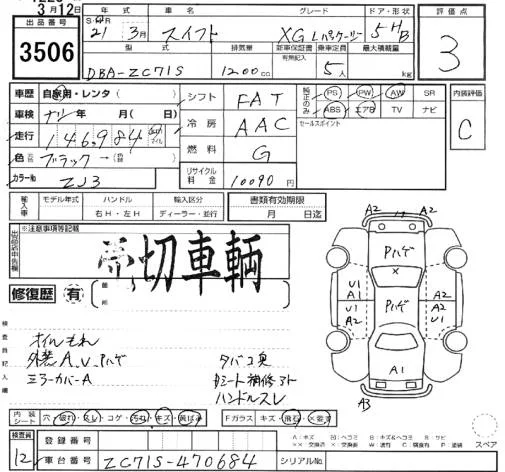 3月12日
出品番号
3506
年式
S・H
21年3月
車名
スイフト
グレード
XG Lパッケージ
ドア・形状
5HB
評価点
3
型式
DBA-ZC71S
排気量
1200cc
新車保証書
有無記入
乗車定員
5人
最大積載量
kg
車歴
自家用・レンタ
車検
ナシ年月
走行
146,984
色
元色
ブラック→
カラーNo
ZJ3
シフト
FAT
冷房
AAC
燃料
G
リサイクル料金
10090円
純正のみ
PS PW AW SR
ABS エアB TV ナビ
セールスポイント
内装評価
C
輸入車
モデル年式
ハンドル
右H・左H
輸入区分
ディーラー・並行
書類有効期限
月 日迄
出品店申告欄
※注意事項等記載
売切車輌
修復歴 有
箇所
検査員記入欄
オイルもれ
外装A、U、Pハゲ
ミラーカバーA
タバコ臭
Dシート補修アト
ハンドルスレ
A2 17 A2
Pハゲ
×
U1
A1
Pハゲ
A2
A2
U1
A2
A1
A3
内装シート
穴・破れ・スレ・コゲ・汚れ・キズ・黄ばみ
Fガラス
キズ・飛石・×要す
検査員
12
登録番号
車台番号
ZC71S-470684
シリアルNo.
A：キズ U：ヘコミ B：キズ&ヘコミ S：サビ
××：交換済 ×：要交換 W：波打 C：腐食有 P：塗装
スペア